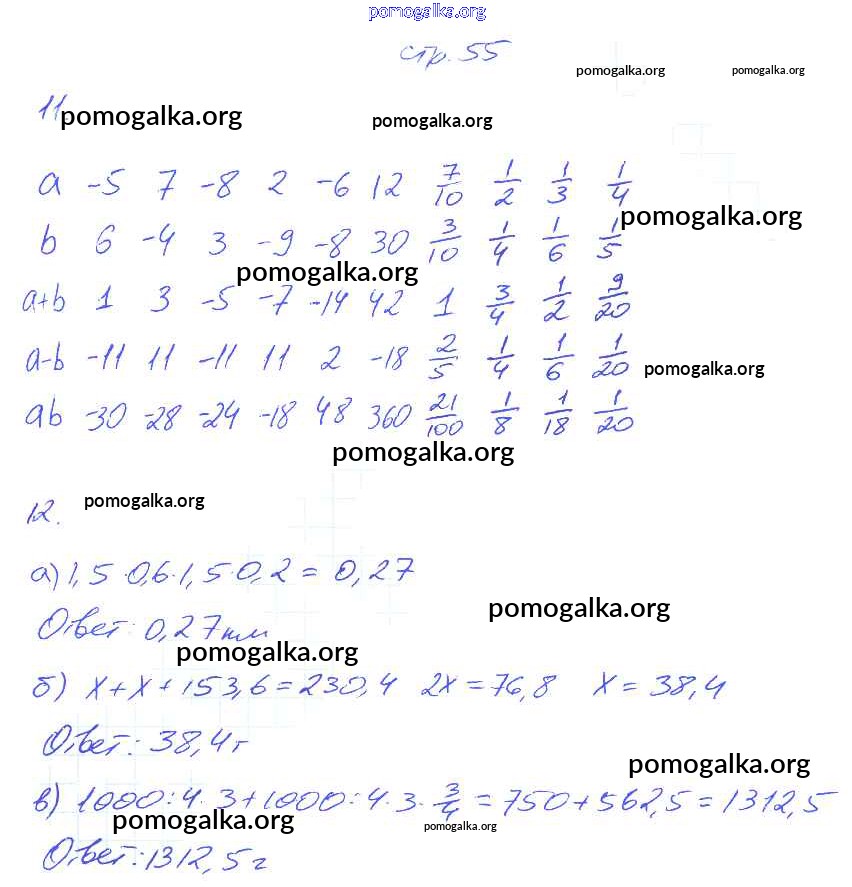 pomogalka.org
стр. 55
pomogalka.org pomogalka.org
11 pomogalka.org pomogalka.org
a -5 7 -8 2 -6 12 7/10 1/2 1/3 1/4
pomogalka.org
b 6 -4 3 -9 -8 30 3/10 1/4 1/6 1/5
pomogalka.org
a+b 1 3 -5 -7 -14 42 1 3/4 1/2 9/20
a-b -11 11 -11 11 2 -18 2/5 1/4 1/6 1/20
pomogalka.org
ab -30 -28 -24 -18 48 360 21/100 1/8 1/18 1/20
pomogalka.org
12. pomogalka.org
а) 1,5·0,6·1,5·0,2 = 0,27
pomogalka.org
Ответ: 0,27 км
pomogalka.org
б) x+x+153,6=230,4 2x=76,8 x=38,4
Ответ: 38,4 г
pomogalka.org
в) 1000:4·3+1000:4·3·3/4=750+562,5=1312,5
pomogalka.org pomogalka.org
Ответ: 1312,5 г